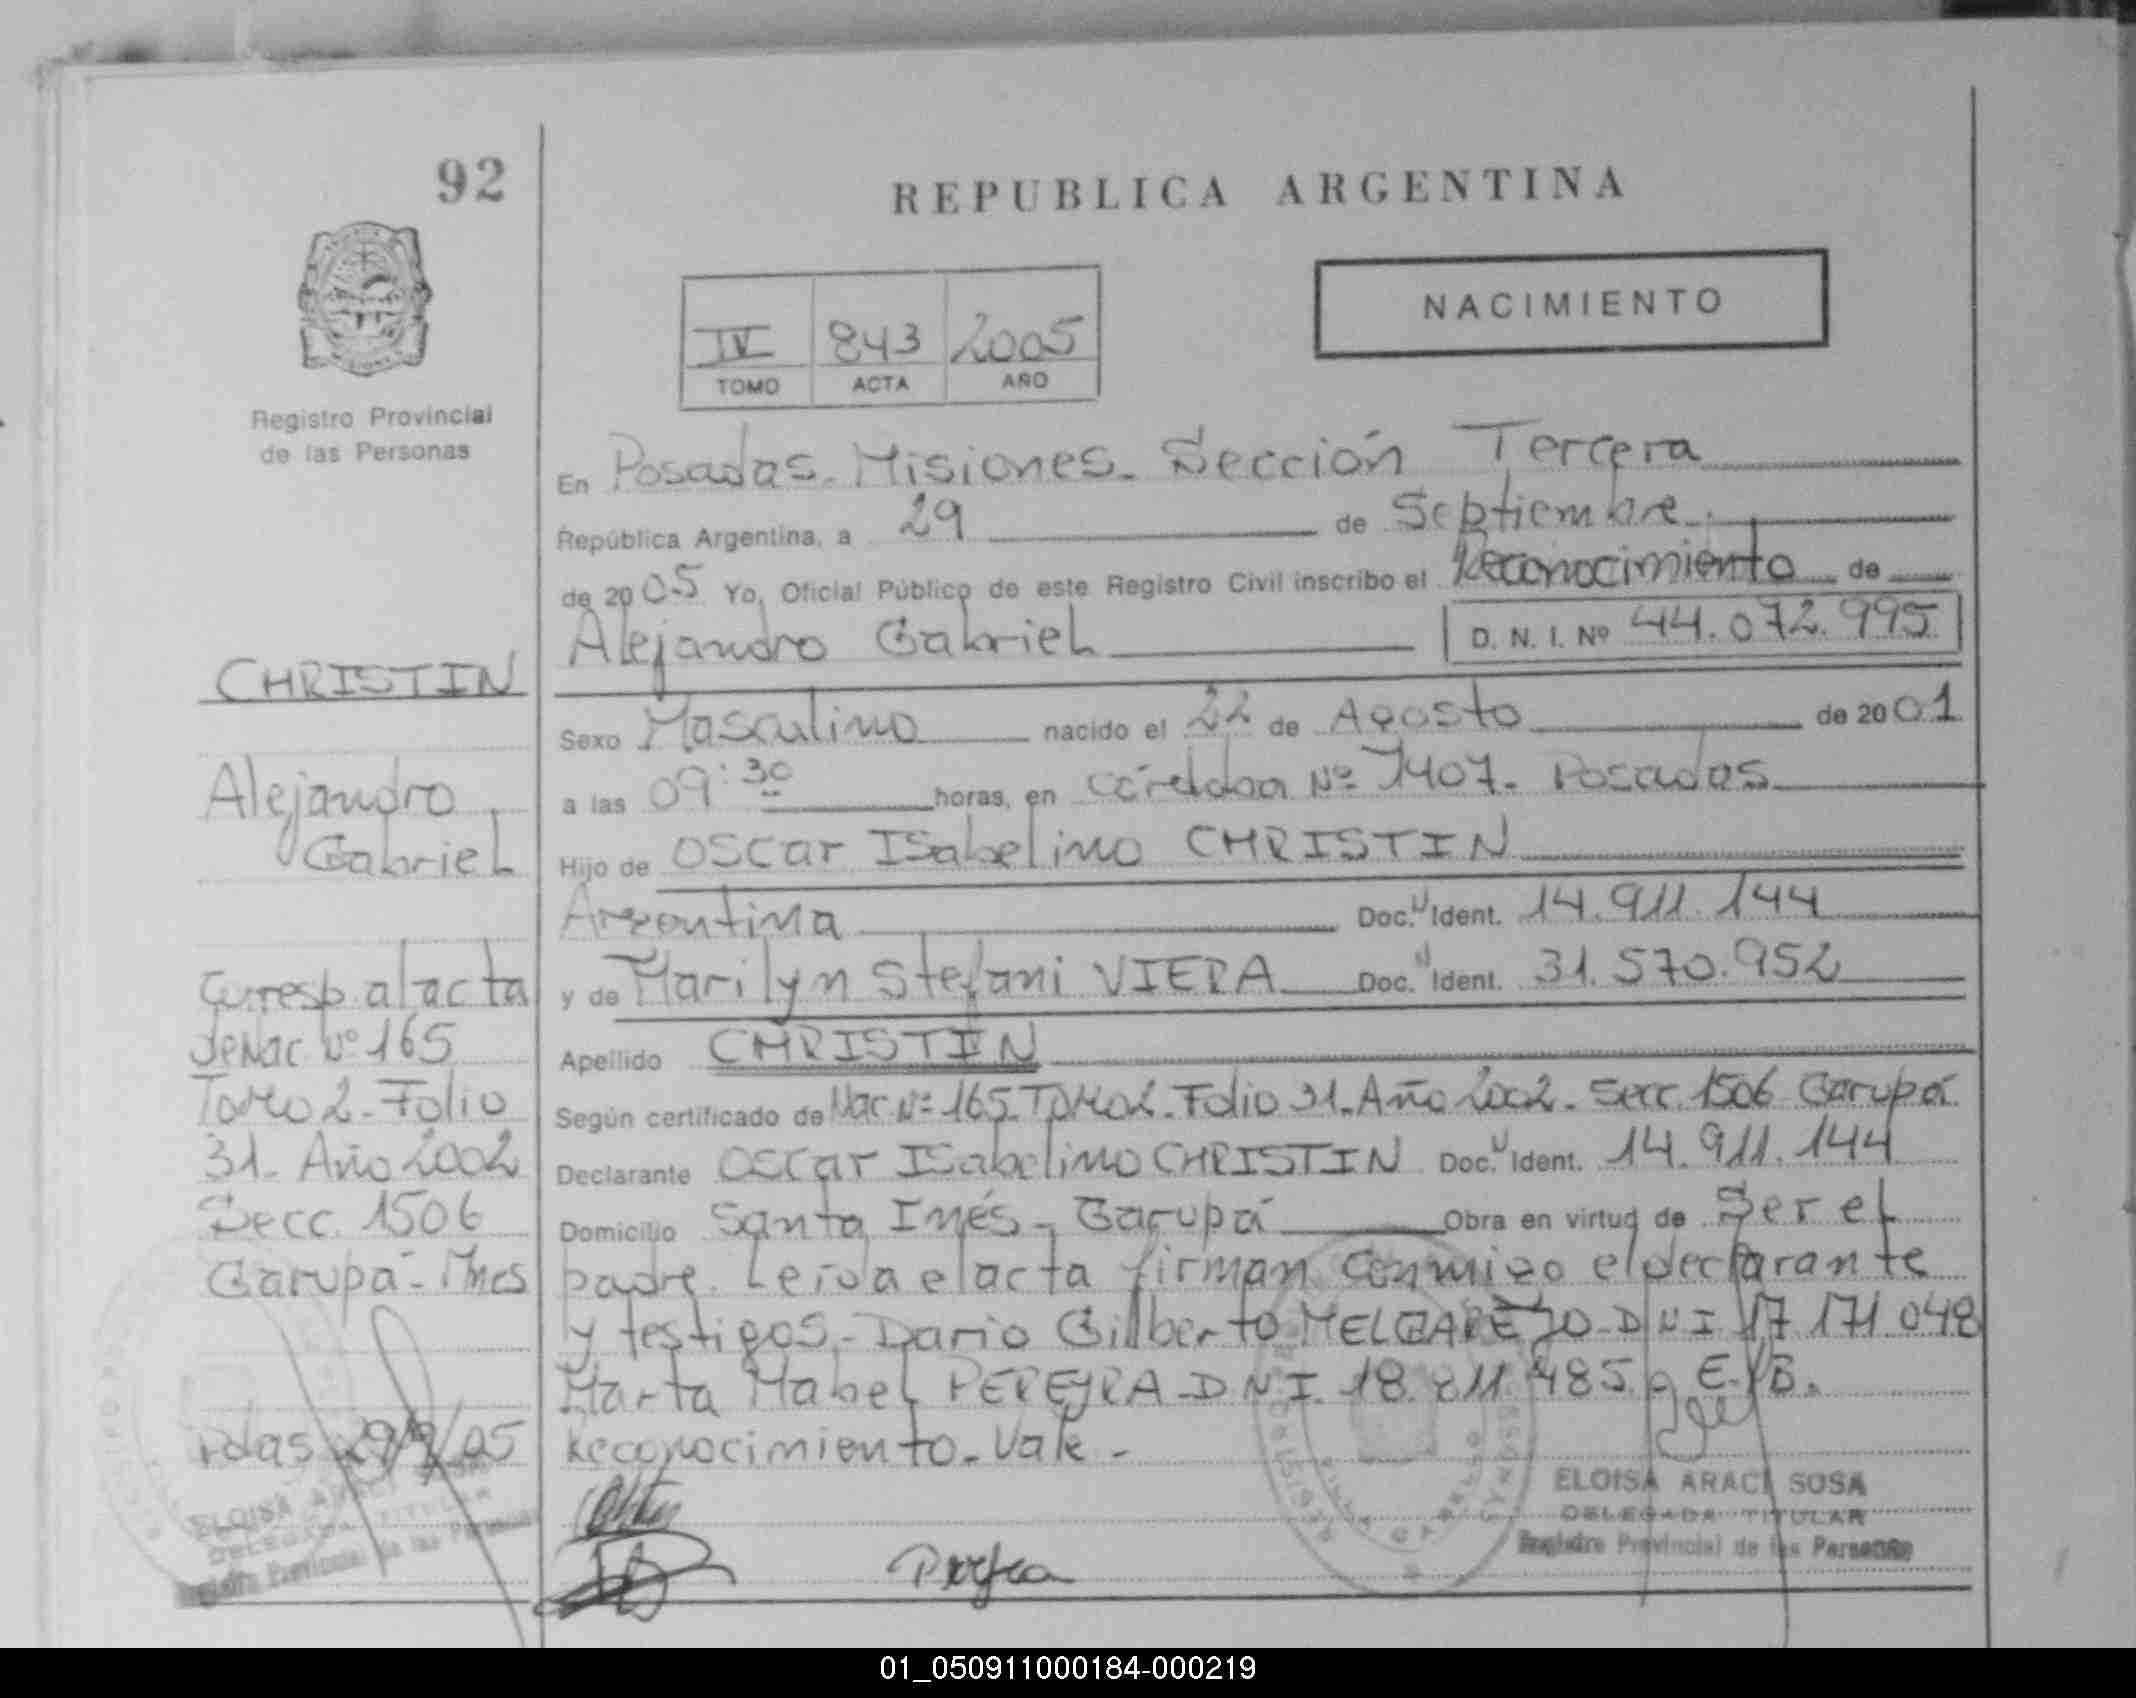 92
REPUBLICA ARGENTINA
NACIMIENTO
IV 843 2005
TOMO ACTA AÑO
Registro Provincial
de las Personas
En Posadas. Misiones. Sección Tercera
República Argentina, a 29 de Septiembre
de 2005 Yo, Oficial Público de este Registro Civil inscribo el Reconocimiento de
Alejandro Gabriel D. N. I. Nº 44.072.995
Sexo Masculino nacido el 22 de Agosto de 2001
a las 09:30 horas, en Córdoba Nº 1407. Posadas
Hijo de Oscar Isabelino CHRISTIN
Argentina Doc. Ident. 14.911.144
y de Marilyn Stefani VIERA Doc. Ident. 31.570.952
Apellido CHRISTIN
Según certificado de Nac Nº 165. Tomo 2. Folio 31. Año 2002. Secc. 1506 Garupá
Declarante Oscar Isabelino CHRISTIN Doc. Ident. 14.911.144
Domicilio Santa Inés - Garupá Obra en virtud de Ser el
padre. Leída el acta firman conmigo el declarante
y testigos. Dario Gilberto MELGAREJO DNI 17 171 048
Marta Mabel PEREYRA DNI. 18.811.485 E. B.
Reconocimiento. Vale -
CHRISTIN
Alejandro
Gabriel
Corresp. al acta
de Nac Nº 165
Tomo 2 - Folio
31. Año 2002
Secc. 1506
Garupá - Mnes
Pdas 29/9/05
ELOISA ARACI SOSA
DELEGADA TITULAR
Registro Provincial de las Personas
ELOISA ARACI SOSA
DELEGADA TITULAR
Registro Provincial de las Personas
01_050911000184-000219